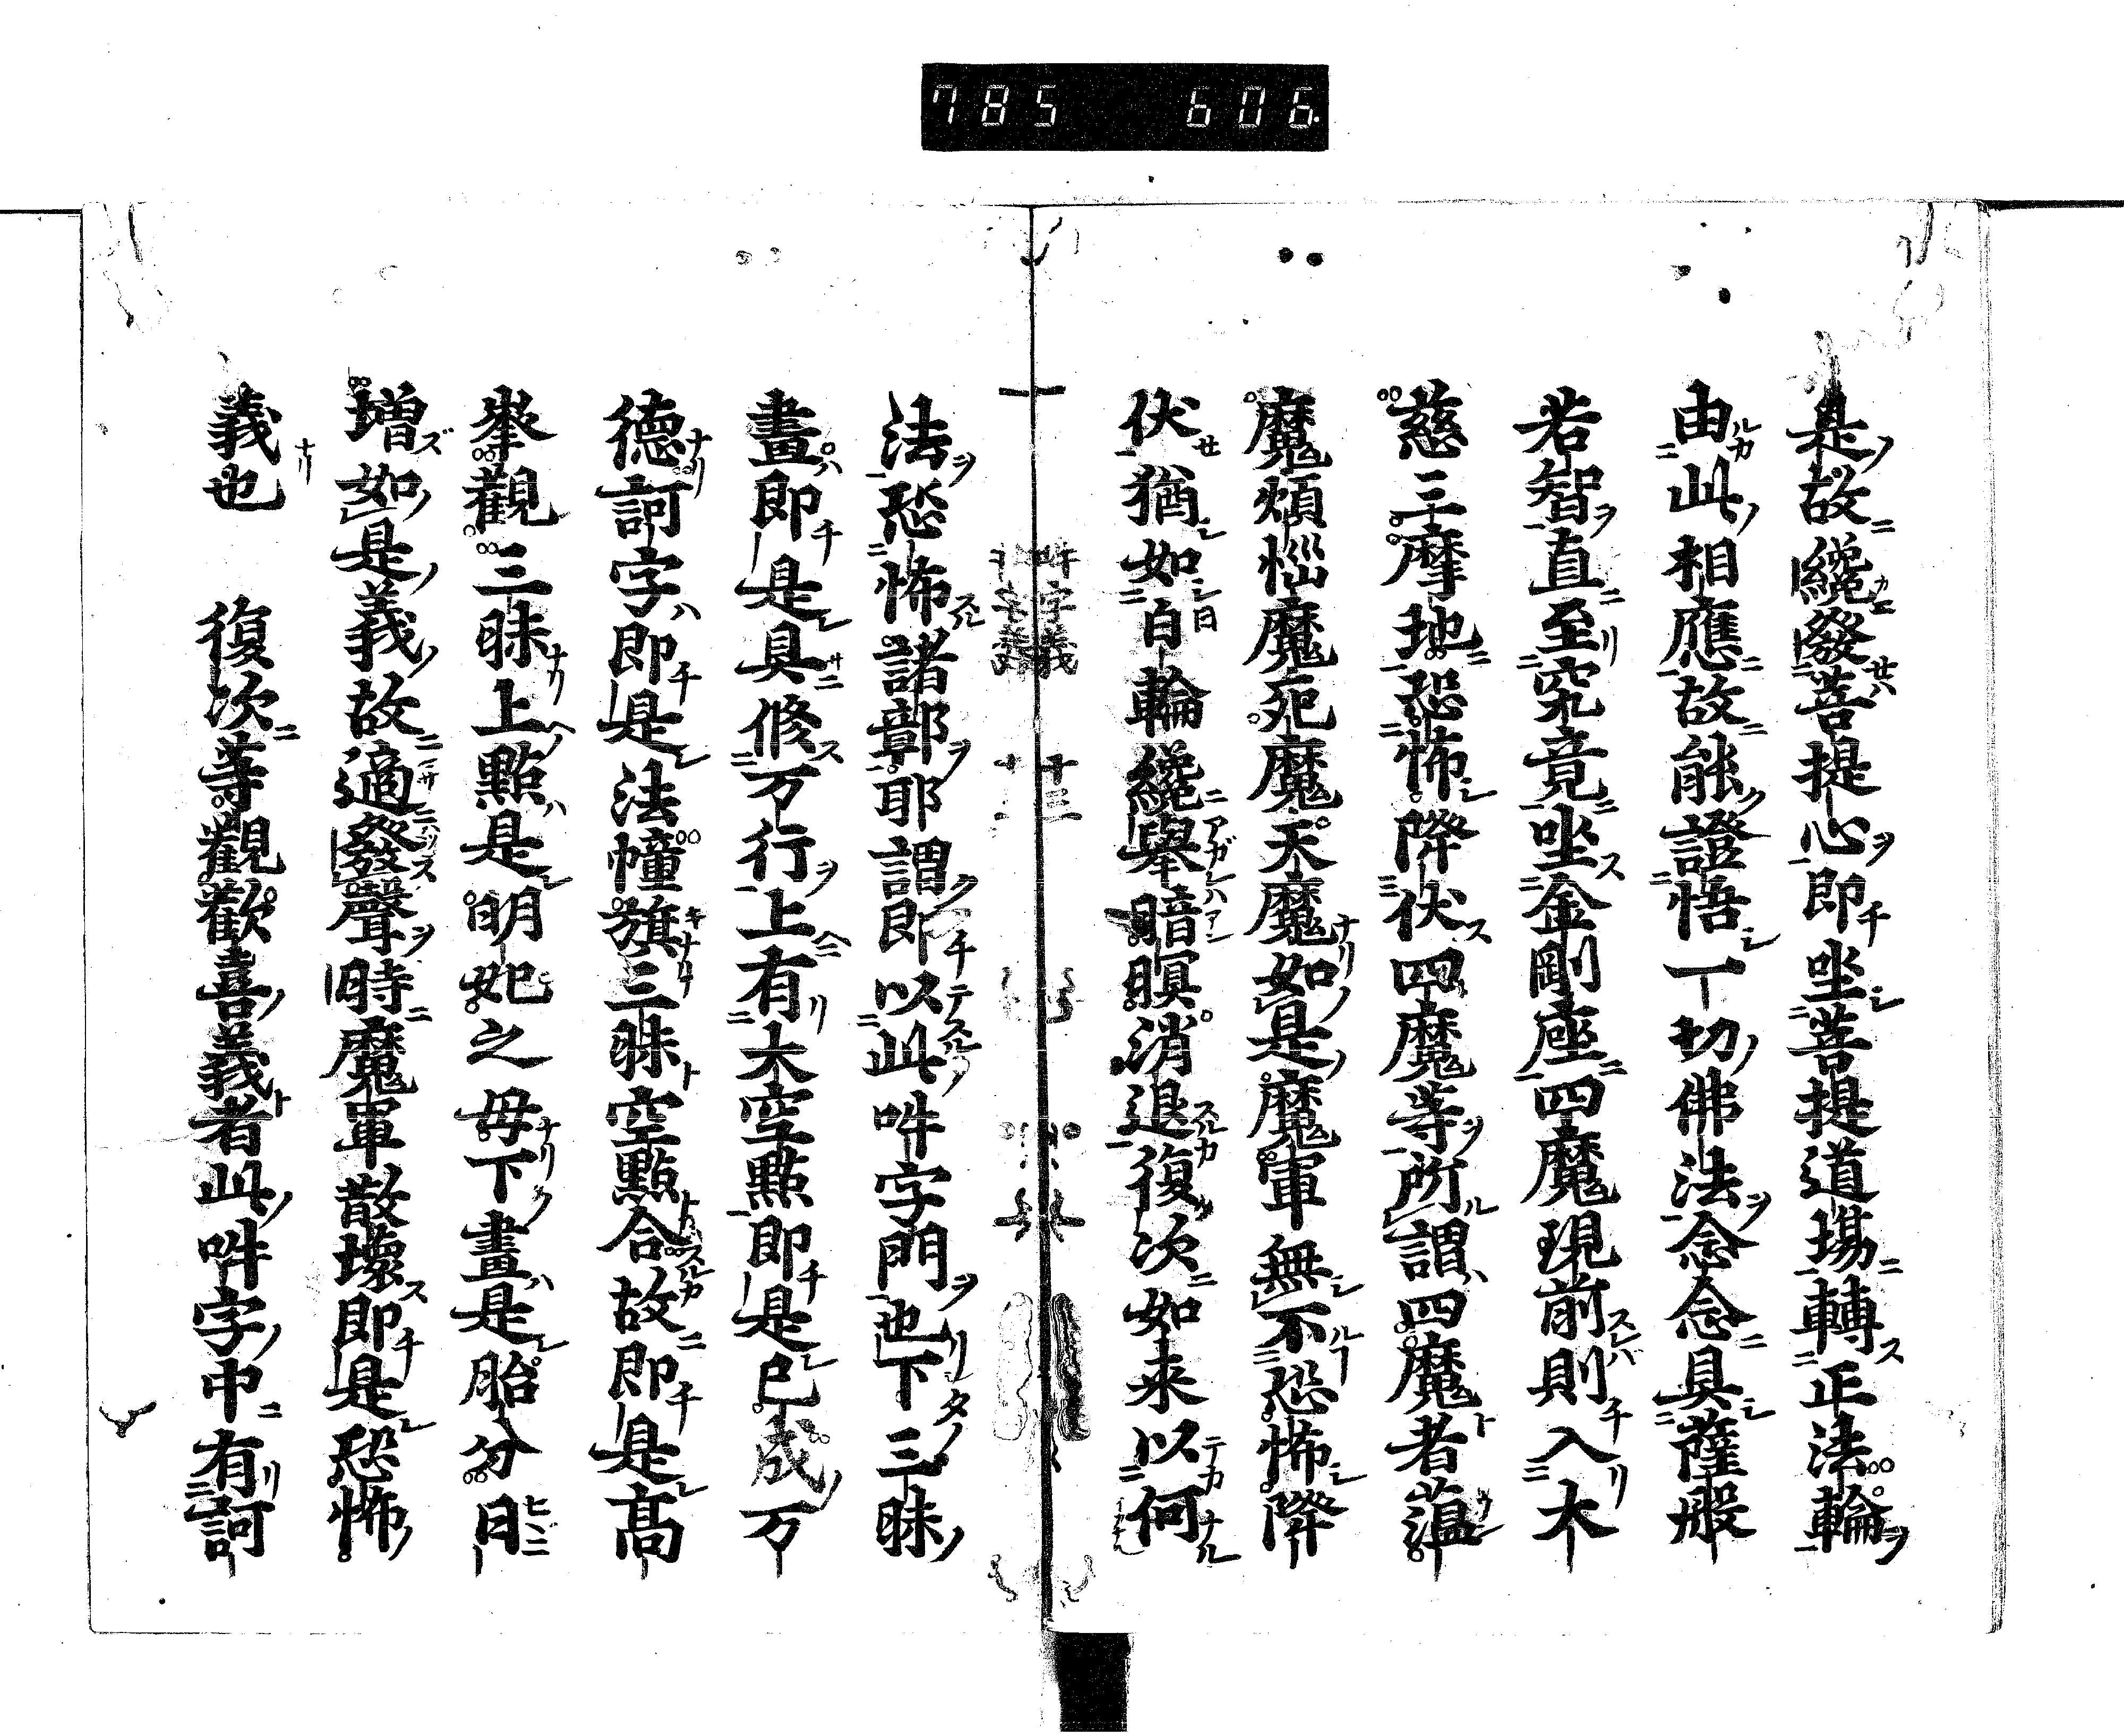 785 606
是故纔發菩提心即坐菩提道場轉正法輪
由此相應故能證悟一切佛法念念具薩般
若智直至究竟坐金剛座四魔現前則入大
慈三摩地恐怖降伏四魔等所謂四魔者蘊
魔煩惱魔死魔天魔如是魔軍無不恐怖降
伏猶如日輪纔舉暗瞑消退復次如来以何
吽字義 十三
法恐怖諸鄣耶謂即以此吽字門也下三昧
畫即是具修万行上有大空點即是已成万
德訶字即是法幢旗三昧空點合故即是高
峯觀三昧上點是明妃之母下畫是胎分日
増如是義故適發聲時魔軍散壞即是恐怖
義也 復次等觀歡喜義者此吽字中有訶